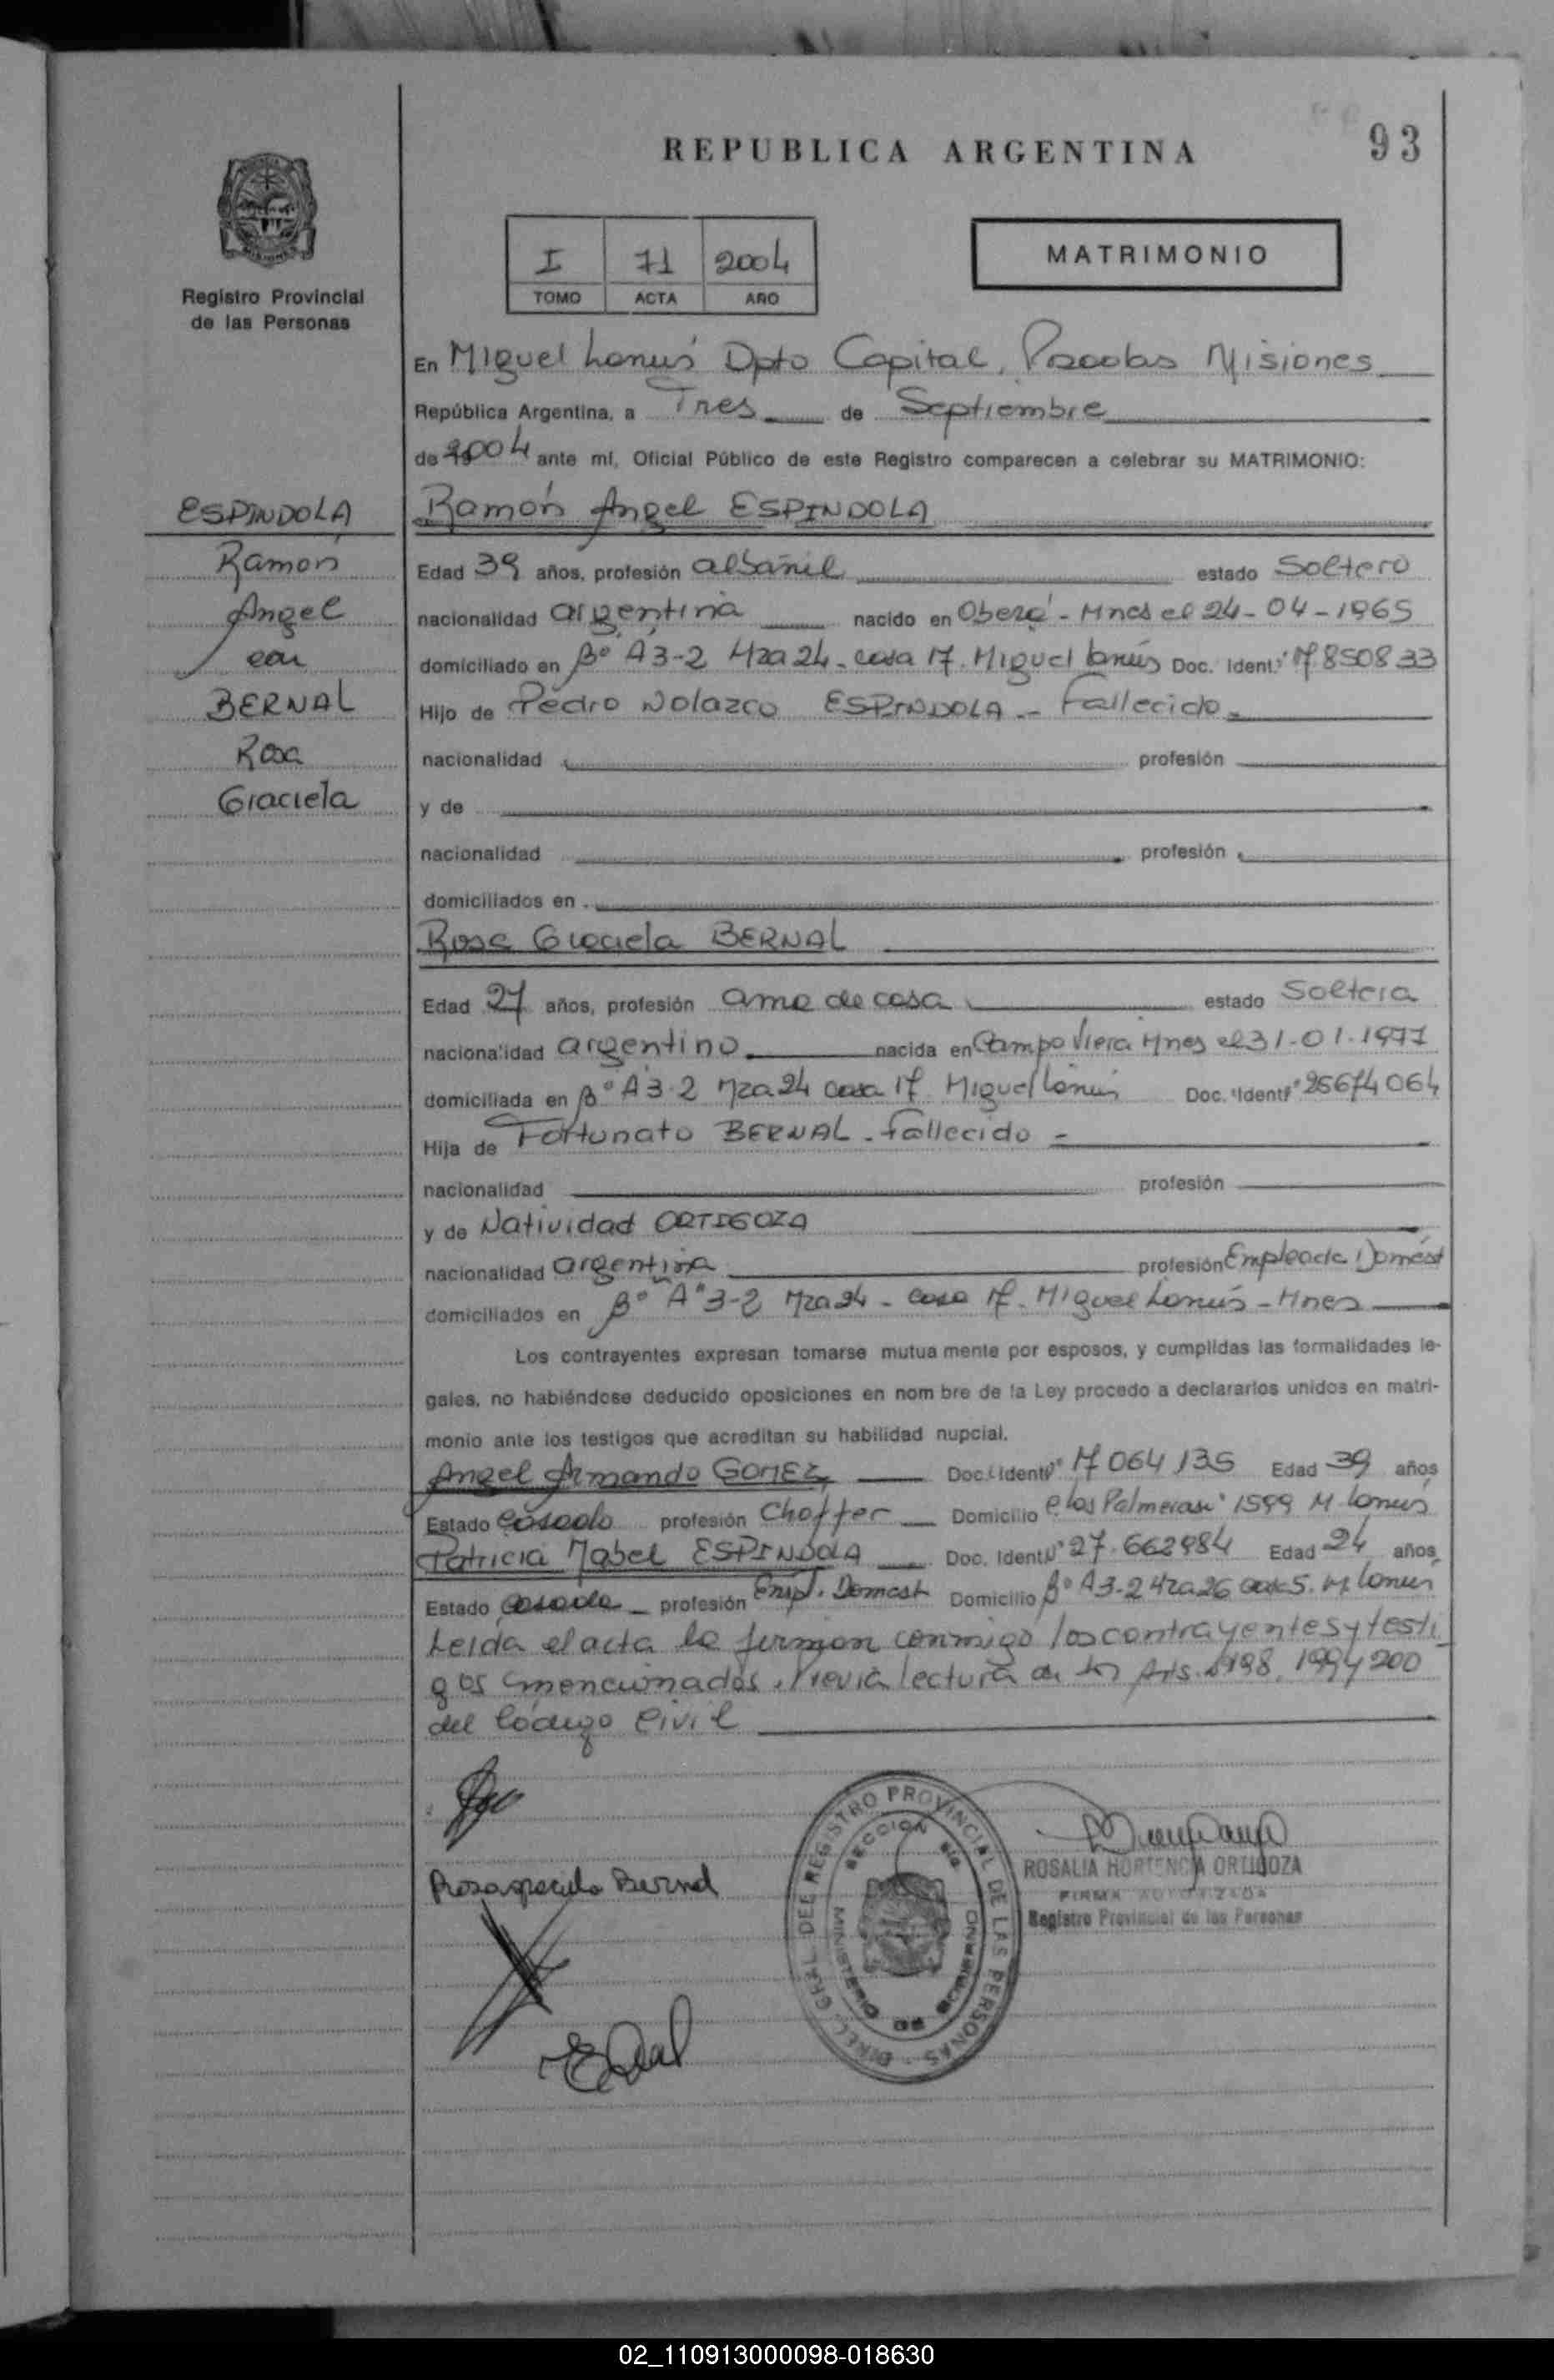 REPUBLICA ARGENTINA
93
Registro Provincial
de las Personas
I 71 2004
TOMO ACTA AÑO
MATRIMONIO
En Miguel Lanús Dpto Capital, Posadas Misiones
República Argentina, a Tres de Septiembre
de 2004 ante mí, Oficial Público de este Registro comparecen a celebrar su MATRIMONIO:
ESPINDOLA
Ramón
Angel
con
BERNAL
Rosa
Graciela
Ramón Angel ESPINDOLA
Edad 39 años, profesión albañil estado Soltero
nacionalidad argentina nacido en Oberá - Mnes el 24-04-1965
domiciliado en Bº A3-2 Mza 24 - casa 17. Miguel Lanús Doc. Ident. Nº 17850833
Hijo de Pedro Nolazco ESPINDOLA - Fallecido
nacionalidad profesión
y de
nacionalidad profesión
domiciliados en
Rosa Graciela BERNAL
Edad 27 años, profesión ama de casa estado Soltera
nacionalidad argentino nacida en Campo Viera Mnes el 31-01-1977
domiciliada en Bº A3-2 Mza 24 casa 17 Miguel Lanús Doc. Ident. Nº 25674064
Hija de Fortunato BERNAL - fallecido
nacionalidad profesión
y de Natividad ORTIGOZA
nacionalidad argentina profesión Empleada Domést
domiciliados en Bº "A"3-2 Mza 24 - casa 17 - Miguel Lanús - Mnes
Los contrayentes expresan tomarse mutua mente por esposos, y cumplidas las formalidades le-
gales, no habiéndose deducido oposiciones en nom bre de la Ley procedo a declararlos unidos en matri-
monio ante los testigos que acreditan su habilidad nupcial.
Angel Armando GOMEZ Doc. Ident. Nº 17064135 Edad 39 años
Estado casado profesión Choffer Domicilio C. las Palmeras 1599 M. Lanús
Patricia Mabel ESPINDOLA Doc. Ident. Nº 27.662984 Edad 24 años
Estado casada profesión Empl. Domest Domicilio Bº A3-2 Mza 26 casa 5. M. Lanús
Leida el acta la firman conmigo los contrayentes y testi
gos mencionados, Previa lectura de los Arts. 198, 199 y 200
del Código Civil
Rosa Graciela Bernal
DIREC. GRAL. DEL REGISTRO PROVINCIAL DE LAS PERSONAS
SECCION
MINISTERIO DE GOBIERNO
ROSALIA HORTENCIA ORTIGOZA
FIRMA AUTORIZADA
Registro Provincial de las Personas
02_110913000098-018630